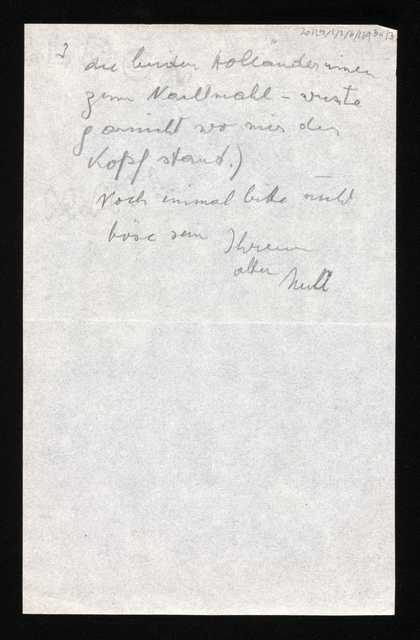 2
die beiden Holländerinnen
zum Nachtmahl – wusste
garnicht wo mir der
Kopf stand.)
Noch einmal bitte nicht
böse sein Ihrem
alten